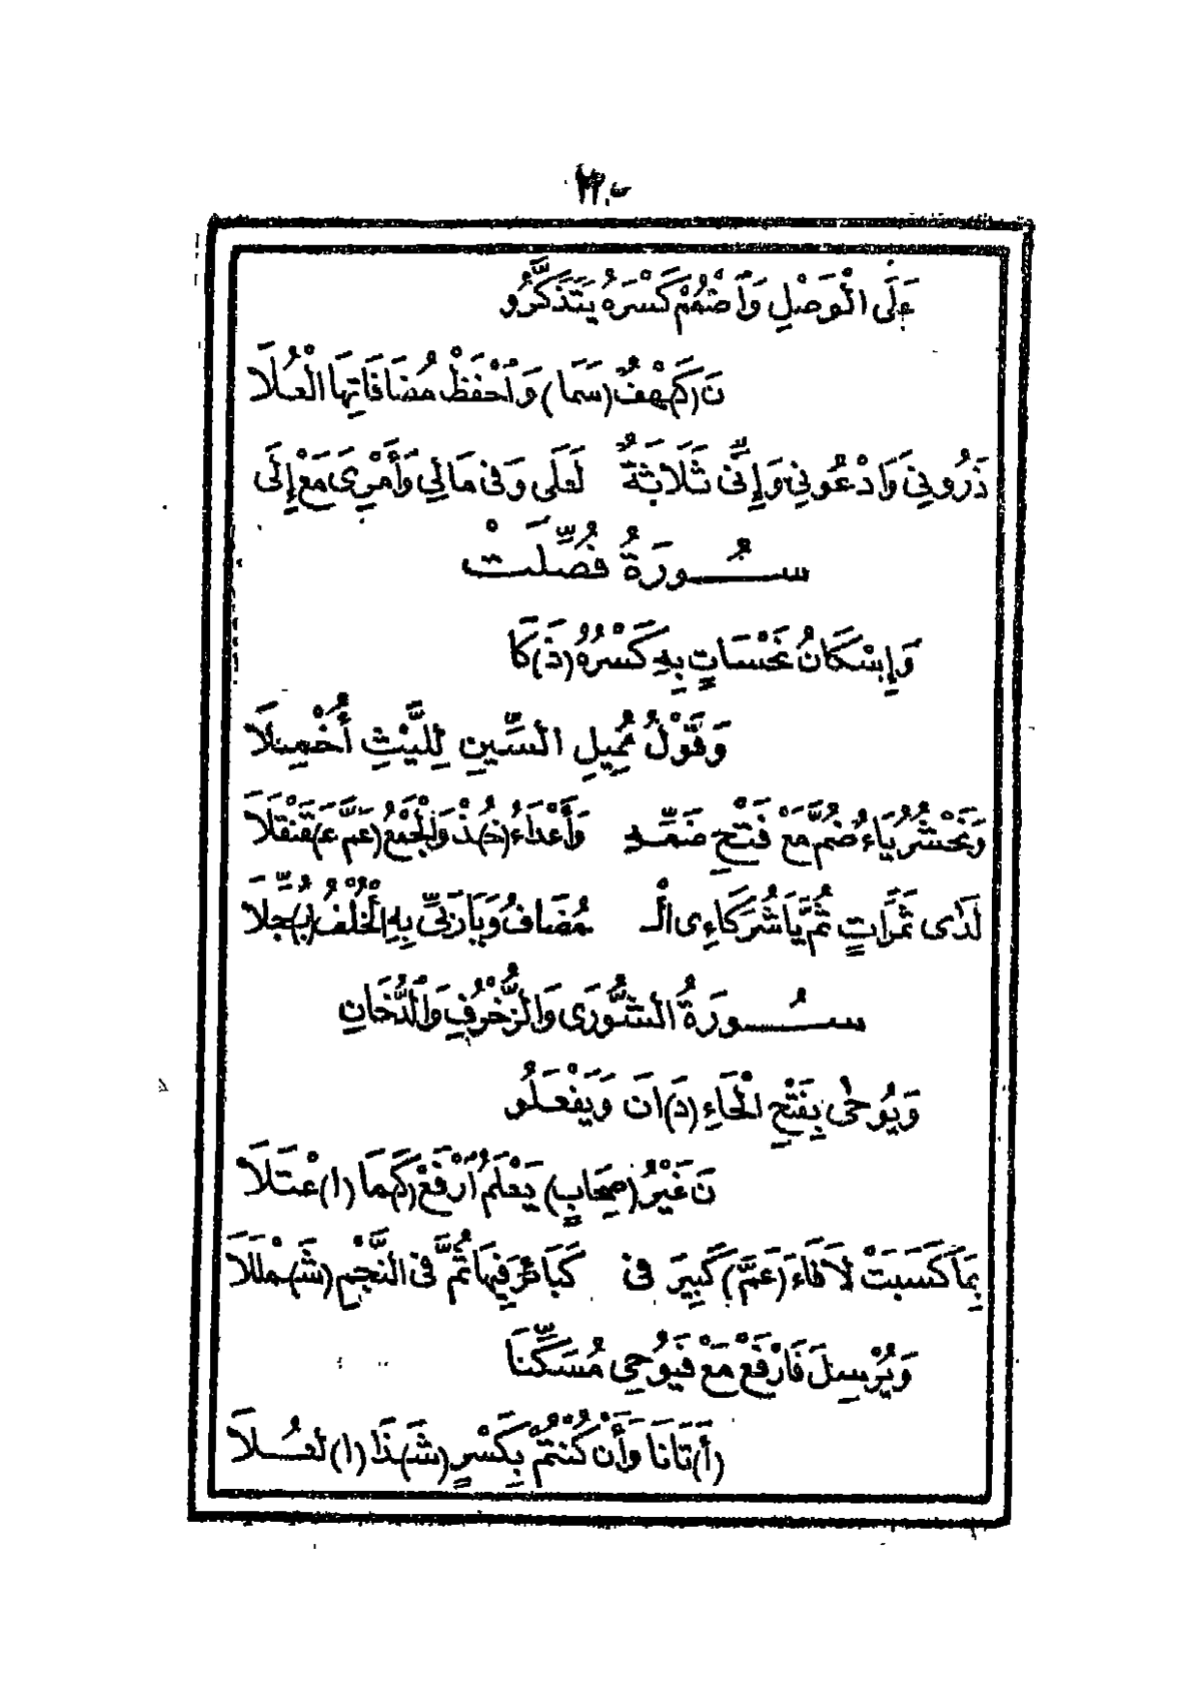 عَلَى الْوَصْلِ وَاَضْمُمْ كَسْرَهُ يَتَذَكَّرُو
نَ (كَـ)هْفٌ (سَمَا) وَاحْفَظْ مُضَافَاتِهَا الْعُلَا
ذَرُونِيَ وَادْعُونِي وَإِنِّي ثَلَاثَةٌ لَعَلِّي وَفِي مَالِي وَأَمْرِيَ مَعْ إِلَى
سُورَةُ فُصِّلَتْ
وَإِسْكَانُ نَحْسَاتٍ بِهِ كَسْرُهُ (ذَ)كَا
وَقَوْلُ مُمِيلِ السِّينِ لِلَّيْثِ أُخْمِلَا
وَنَحْشُرُ يَاءٌ ضُمَّ مَعْ فَتْحِ ضَمِّهِ وَأَعْدَاءُ (خُـ)ذْ وَالْجَمْعُ (عَمَّ عَـ)قَنْقَلَا
لَدَى ثَمَرَاتٍ ثُمَّ يَا شُرَكَاءِيَ الْـ مُضَافُ وَيَا رَبِّي بِهِ الْخُلْفُ (بُـ)جِّلَا
سُورَةُ الشُّورَى وَالزُّخْرُفِ وَالدُّخَانِ
وَيُوحَى بِفَتْحِ الْحَاءِ (دَ)انَ وَيَفْعَلُو
نَ غَيْرُ (صِحَابٍ) يَعْلَمَ ارْفَعْ (كَـ)مَا (ا)عْتَلَا
بِمَا كَسَبَتْ لَا فَاءَ (عَمَّ) كَبِيرَ فِي كَبَائِرَ فِيهَا ثُمَّ فِي النَّجْمِ (شَـ)مْلَلَا
وَيُرْسِلَ فَارْفَعْ مَعْ فَيُوحِي مُسَكِّنَا
(أَ)تَانَا وَأَنْ كُنْتُمْ بِكَسْرٍ (شَـ)ذَا (ا)لْعُلَا